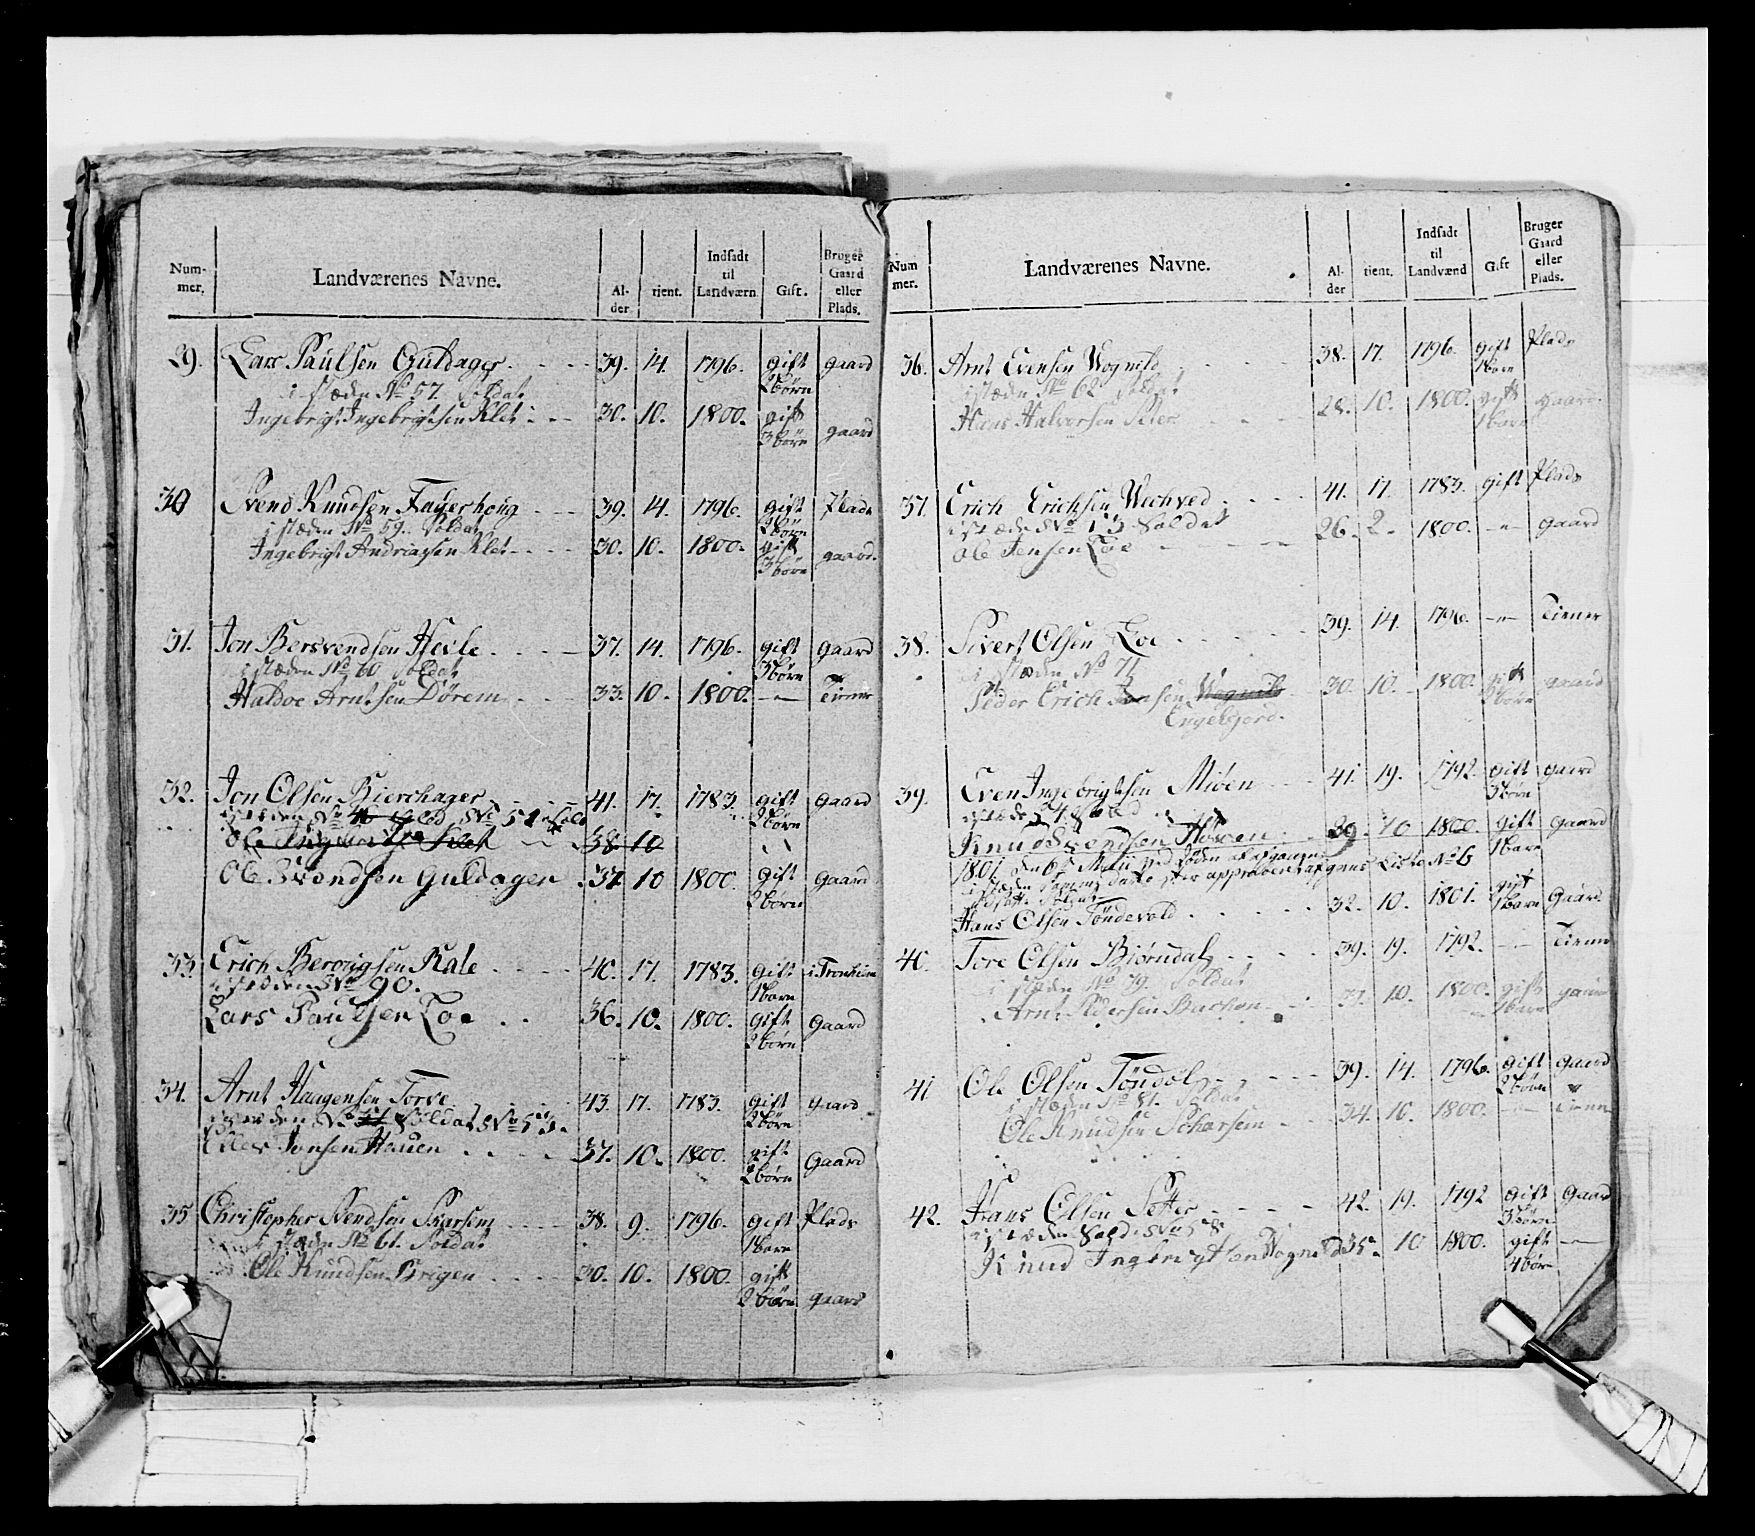 Num- mer. Landværenes Navne. Al- der tjent. Indsadt til Landværn Gift. Bruger Gaard eller Plads.
29. Lars Paulsen Guldager 39. 14. 1796. gift 2 børn gaard
i stæden No 57. Soldat
Ingebrigt Ingebrigtsen Klet 30. 10. 1800. gift 3 børn gaard
30 Svend Knudsen Fagerhoug 39. 14. 1796. gift 2 børn Plads
i stæden No 59. Soldat
Ingebrigt Andriassen Klet 30. 10. 1800. gift 3 børn gaard.
31. Jon Bersvendsen Hevle 37. 14. 1796. gift 3 børn gaard
i stæden No 60 Soldat
Haldoe Arntsen Dørem 33. 10. 1800. -"- Tiener
32. Jon Olsen Bierchager 41. 17. 1783. gift 2 børn gaard
38. 10
Ole Svendsen Guldager 37 10 1800. gift 2 børn gaard
33. Erich Beroigsen Kale 40. 17. 1783. gift 1 barn i Tronhiem
i stæden No 90.
Lars Paulsen Loe 36. 10. 1800. gift 2 børn gaard
34. Arnt Haagensen Torve 43. 17. 1783. gift 2 børn gaard
i stæden No 51 Soldat No 53.
Elles Jonsen Hauen 37. 10. 1800. gift 2 børn gaard
35 Christopher Svendsen Skarsem 38. 9. 1796. gift 1 barn Plads
i stæden No 61. Soldat
Ole Knudsen Brigen 30. 10. 1800. gift 2 børn gaard
Num mer. Landværenes Navne. Al- der tient. Indsadt til Landværnd Gift Bruger Gaard eller Plads.
36. Arnt Evensen Wognild 38. 17. 1796. gift 1 barn Plads
i stæden No 62 Soldat
Hans Halvorsen Stier 28. 10. 1800. gift 1 barn gaard.
37. Erich Erichsen Wechved 41. 17. 1783. gift Plads
i stæden No 13 Soldat
Ole Jensen Loe 26. 2. 1800. -"- gaard
38. Sivert Olsen Loe 39. 14. 1796. -"- Tiener
i stæden No 71
Peder Erich Jensen Wognild 30. 10. 1800. gift 2 børn gaard
Engelsjord.
39. Even Ingebrigtsen Miøen 41. 19. 1792. gift 3 børn gaard
Knud Svendsen Hoven 39. 10 1800. gift 1 barn gaard
1801 den 6te Maii ved Døden afgangen
Hans Olsen Tøndevold 32. 10. 1801. gift 1 barn Gaard
40. Tore Olsen Biørndal 39. 19. 1792. -"- Tiener
i stæden No 79. Soldat
Arnt Pedersen Buchen 37. 10. 1800. gift 1 barn gaard
41 Ole Olsen Tøndøl 39. 14. 1796. gift 2 børn gaard
i stæden No 81. Soldat
Ole Knudsen Scharsem 34. 10. 1800. -"- Tiener
42. Hans Olsen Setter 42. 19. 1792 gift 3 børn gaard
i stæden Sold. No 58
Knud Ingebrigtsen Wognild 35. 10 1800. gift 4 børn -"-